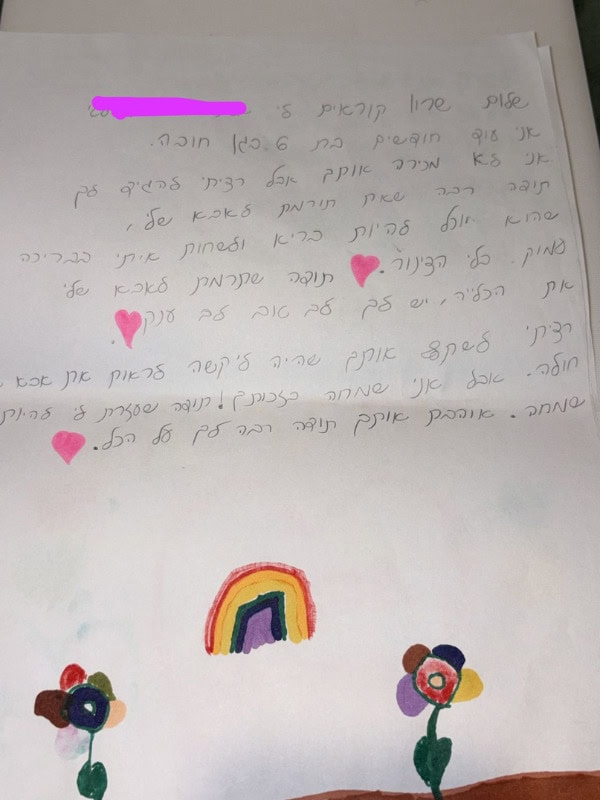 שלום שרון קוראים לי
אני עוד חודשים בת 6. בגן חובה.
אני לא מכירה אותך אבל רציתי להגיד לך
תודה רבה שאת תורמת לאבא שלי,
שהוא יוכל להיות בריא ולשחות איתי בבריכה
עמוק. בלי הצינור. תודה שתרמת לאבא שלי
את הכליה, יש לך לב טוב לב ענק.
רציתי לשתף אותך שהיה לי קשה לראות את אבא
חולה. אבל אני שמחה בזכותך! תודה שעזרת לי להיות
שמחה. אוהבת אותך תודה רבה לך על הכל.